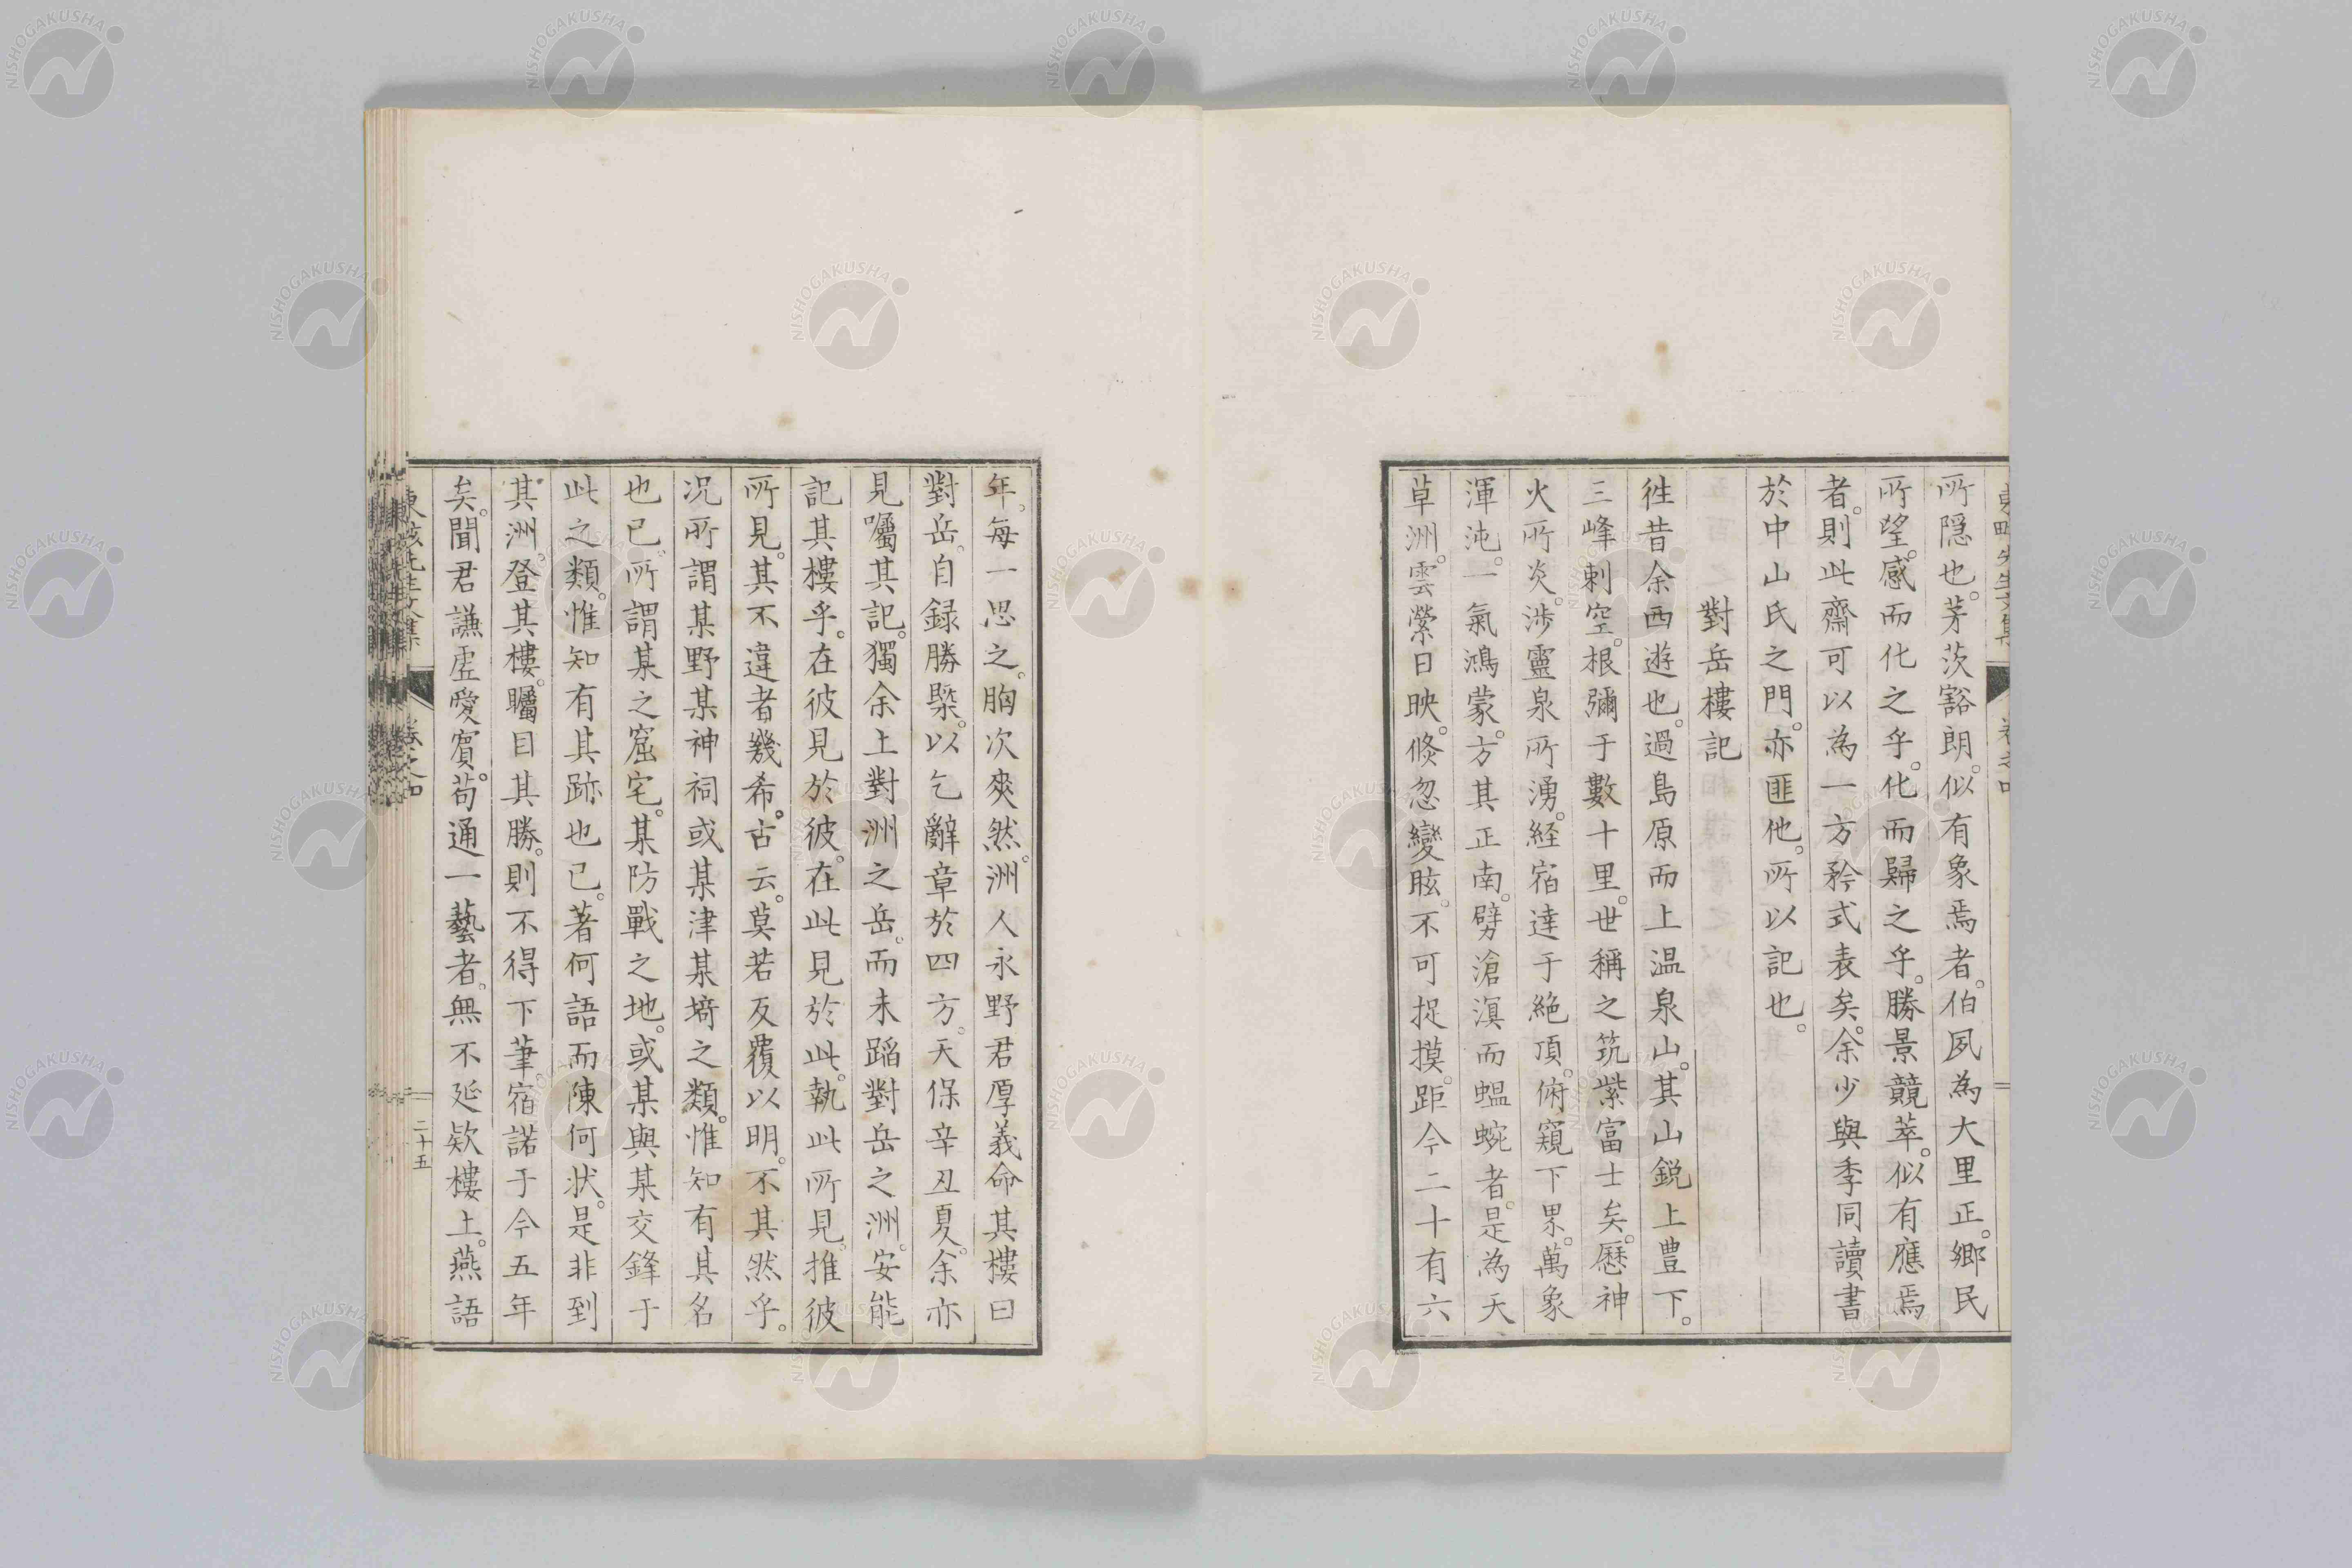 所隠也。茅茨豁朗。似有象焉者。伯夙為大里正。鄉民
所望。感而化之乎。化而歸之乎。勝景競萃。似有應焉
者。則此齋可以為一方矜式表矣。余少與季同讀書
於中山氏之門。亦匪他。所以記也。
對岳樓記
徃昔余西遊也。過島原而上温泉山。其山鋭上豊下。
三峰刺空。根彌于數十里。世稱之筑紫富士矣。歷神
火所炎。涉靈泉所湧。経宿達于絶頂。俯窺下界。萬象
渾沌。一氣鴻蒙。方其正南。劈滄溟而蝹蜿者。是為天
草洲。雲縈日映。倐忽變眩。不可捉摸。距今二十有六
年。每一思之。胸次爽然。洲人永野君厚義命其樓曰
對岳。自録勝槩。以乞辭章於四方。天保辛丑夏。余亦
見囑其記。獨余上對洲之岳。而未蹈對岳之洲。安能
記其樓乎。在彼見於彼。在此見於此。執此所見。推彼
所見。其不違者幾希。古云。莫若反覆以明。不其然乎。
况所謂某野某神祠或某津某埼之類。惟知有其名
也已。所謂某之窟宅。某防戰之地。或某與某交鋒于
此之類。惟知有其跡也已。著何語而陳何状。是非到
其洲。登其樓。矚目其勝。則不得下筆。宿諾于今五年
矣。聞君謙虚愛賓。苟通一藝者。無不延欵樓上。燕語
卷之四
二十五
NISHOGAKUSHA